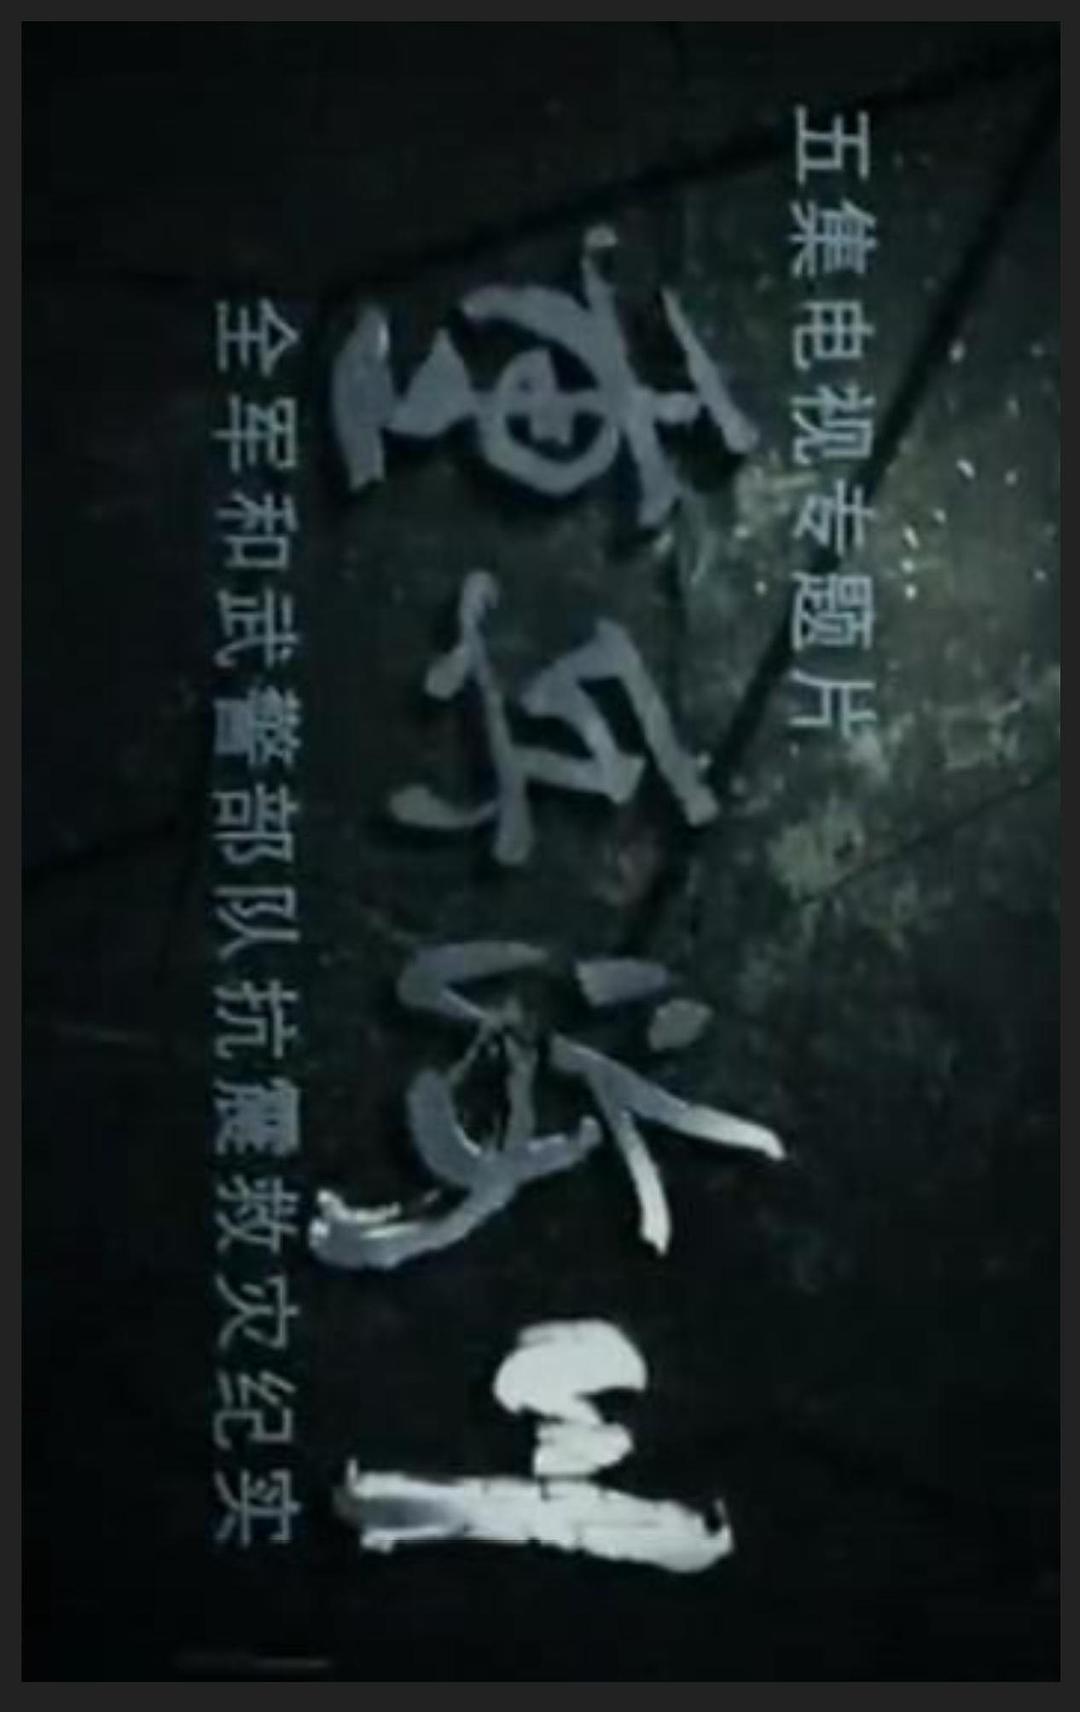 五集电视专题片
重兵 川
全军和武警部队抗震救灾纪实